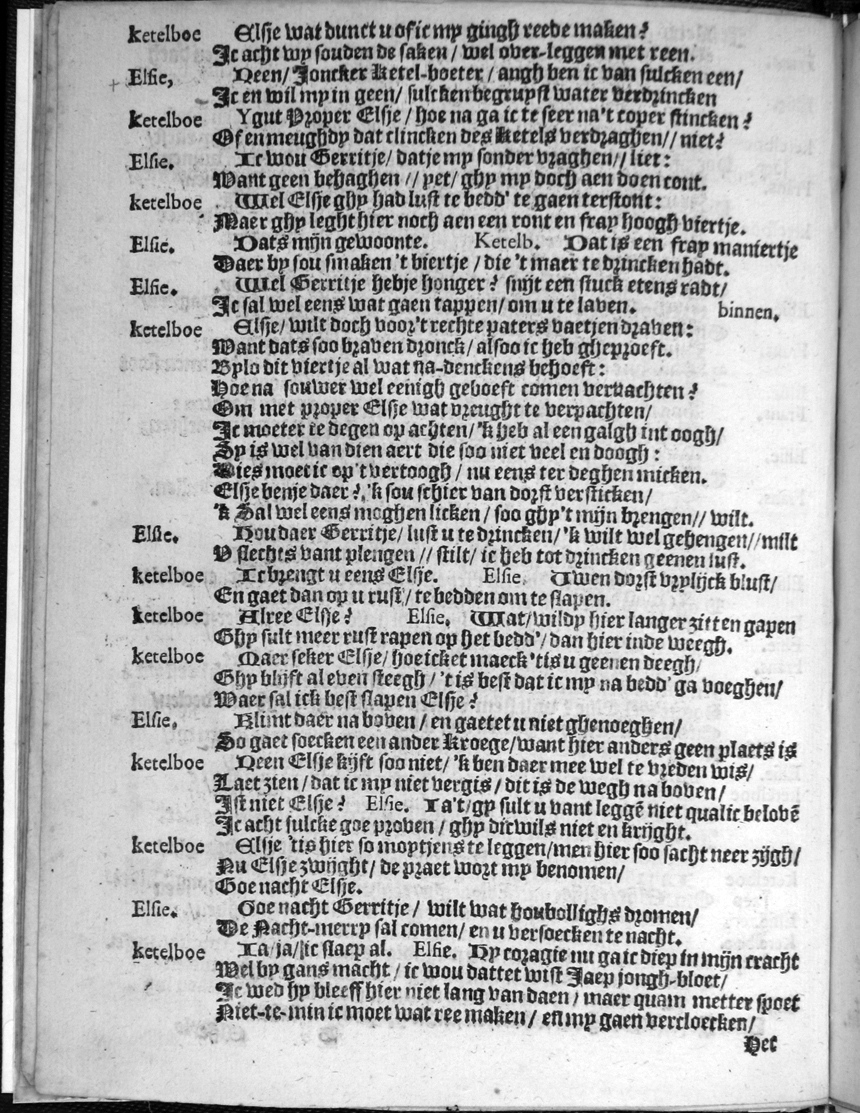 ketelboe Elsje wat dunct u of ic my gingh reede maken?
Ic acht wy souden de saken / wel over-leggen met reen.
Elsie, Neen / Joncker Ketel-boeter / angh ben ic van sulcken een /
Ic en wil my in geen / sulcken begruyst water verdrincken
ketelboe Ygut Proper Elsje / hoe na ga ic te seer na't coper stincken?
Of en meughdy dat clincken des Ketels verdraghen // niet?
Elsie. Ic wou Gerritje / datje my sonder vraghen // liet:
Want geen behaghen // yet / ghy my doch aen doen cont.
ketelboe Wel Elsje ghy had lust te bedd' te gaen terstont:
Maer ghy leght hier noch aen een ront en fray hoogh viertje.
Elsie. Dats mijn gewoonte. Ketelb. Dat is een fray maniertje
Daer by sou smaken 't biertje / die 't maer te drincken hadt.
Elsie. Wel Gerritje hebje honger? snijt een stuck etens radt /
Ic sal wel eens wat gaen tappen / om u te laven. binnen.
ketelboe Elsje / wilt doch voor't rechte paters vaetjen draven:
Want dats soo braven dronck / alsoo ic heb gheproeft.
Bylo dit viertje al wat na-denckens behoeft:
Hoe na souwer wel eenigh geboeft comen verwachten?
Om met proper Elsje wat vreught te verpachten /
Ic moeter te degen op achten / 'k heb al een galgh int oogh /
Sy is wel van dien aert die soo niet veel en doogh:
Dies moet ic op't vertoogh / nu eens ter deghen micken.
Elsje benje daer? 'k sou schier van dorst versticken /
'k Sal wel eens moghen licken / soo ghy't mijn brengen // wilt.
Elsie. Hou daer Gerritje / lust u te drincken / 'k wilt wel gehengen // milt
V slechts vant plengen // stilt / ic heb tot drincken geenen lust.
ketelboe Ic brengt u eens Elsje. Elsie. Uwen dorst vrylijck blust /
En gaet dan op u rust / te bedden om te slapen.
ketelboe Alree Elsje? Elsie. Wat / wildy hier langer zitten gapen
Ghy sult meer rust rapen op het bedd' / dan hier inde weegh.
ketelboe Maer seker Elsje / hoe icket maeck 'tis u geenen deegh /
Ghy blijft al even steegh / 't is best dat ic my na bedd' ga voeghen /
Waer sal ick best slapen Elsje?
Elsie. Klimt daer na boven / en gaetet u niet ghenoeghen /
So gaet soecken een ander Kroege / want hier anders geen plaets is
ketelboe Neen Elsje kijft soo niet / 'k ben daer mee wel te vreden wis /
Laet zien / dat ic my niet vergis / dit is de wegh na boven /
Ist niet Elsje? Elsie. Ja't / gy sult u vant leggē niet qualic belovē
Ic acht sulcke goe proven / ghy dicwils niet en krijght.
ketelboe Elsje 'tis hier so moytjens te leggen / men hier soo sacht neer zijgh /
Nu Elsje zwijght / de praet wort my benomen /
Goe nacht Elsje.
Elsie. Goe nacht Gerritje / wilt wat houbollighs dromen /
De Nacht-merry sal comen / en u versoecken te nacht.
ketelboe Ja / ja / ic slaep al. Elsie. Hy coragie nu ga ic diep in mijn cracht
Wel by gans macht / ic wou dattet wist Jaep jongh-bloet /
Ic wed hy bleeff hier niet lang van daen / maer quam metter spoet
Niet-te-min ic moet wat ree maken / en my gaen vercloecken /
Het